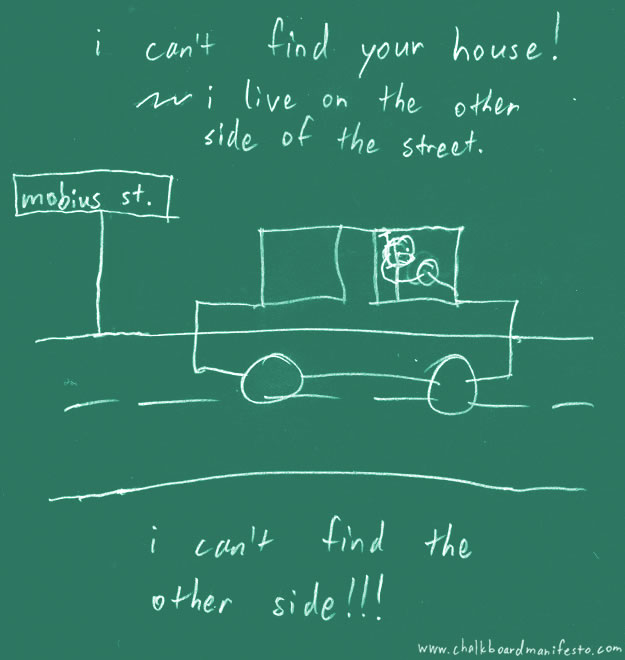 i can't find your house!
i live on the other
side of the street.
mobius st.
i can't find the
other side!!!
www.chalkboardmanifesto.com